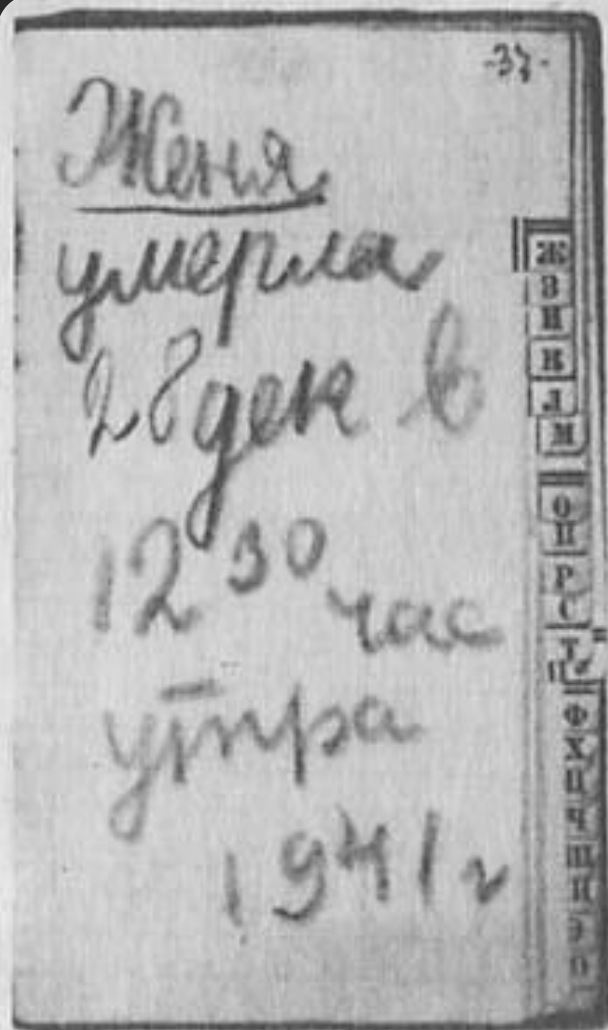 -37-
Женя
умерла
28 дек в
12 30 час
утра
1941 г
Ж
З
И
К
Л
М
О
П
Р
С
Т
Ф
Х
Ц
Ч
Ш
Щ
Э